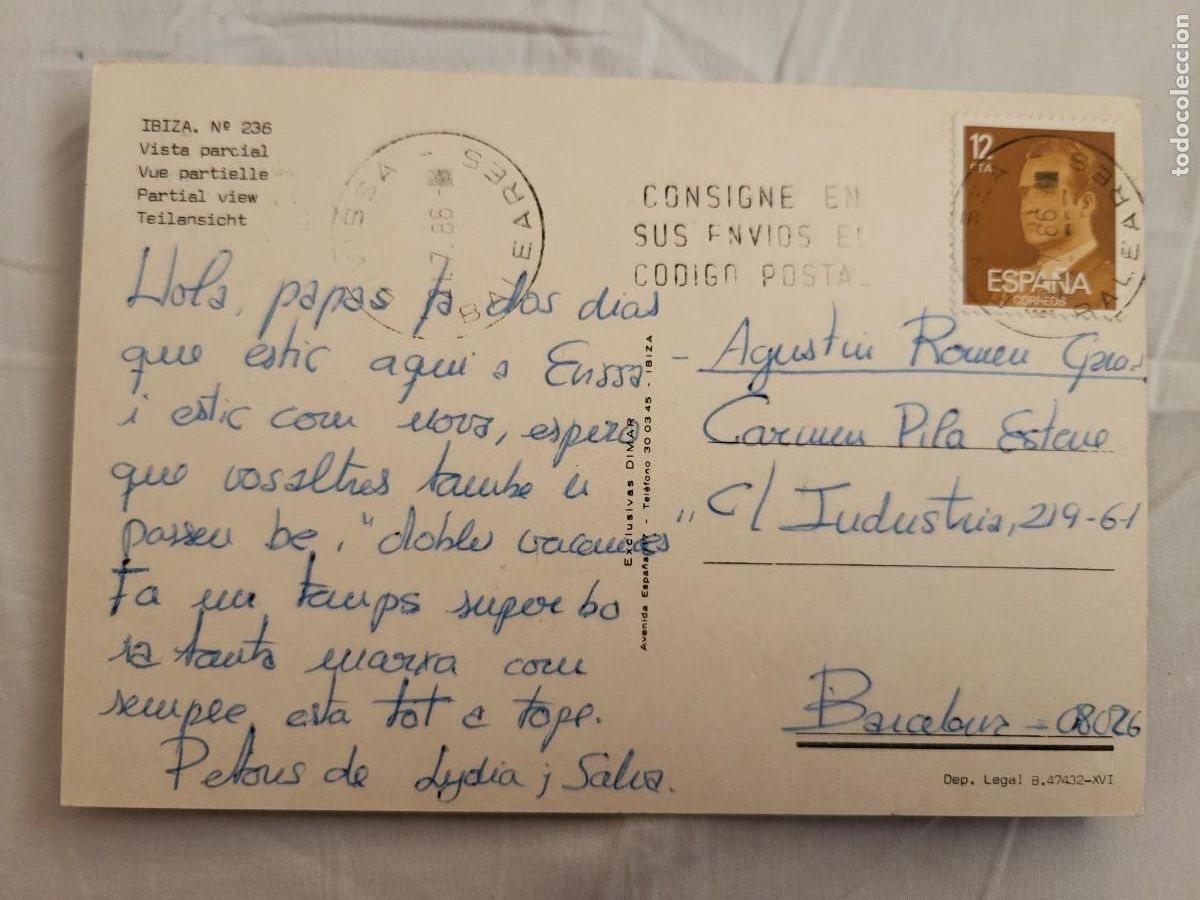 IBIZA. Nº 236
Vista parcial
Vue partielle
Partial view
Teilansicht
EIVISSA - BALEARES
7.86
CONSIGNE EN
SUS ENVIOS EL
CODIGO POSTA
12
PTA
ESPAÑA
CORREOS
BALEARES
Hola, papas fa dos dias
que estic aqui a
i estic com nova, espero
que vosaltres tambe u
passeu be, "dobles vacances"
Fa un temps super bo
ia tanta marxa com
sempre, esta tot a tope.
Petons de Lydia i Salva.
Exclusivas DIMAR
Avenida España, - Teléfono 30 03 45 - IBIZA
Agustin Romeu
Carmen Pila Esteve
C/ Industria, 219-6-1
Barcelona - 08026
Dep. Legal B.47432-XVI
todocoleccion